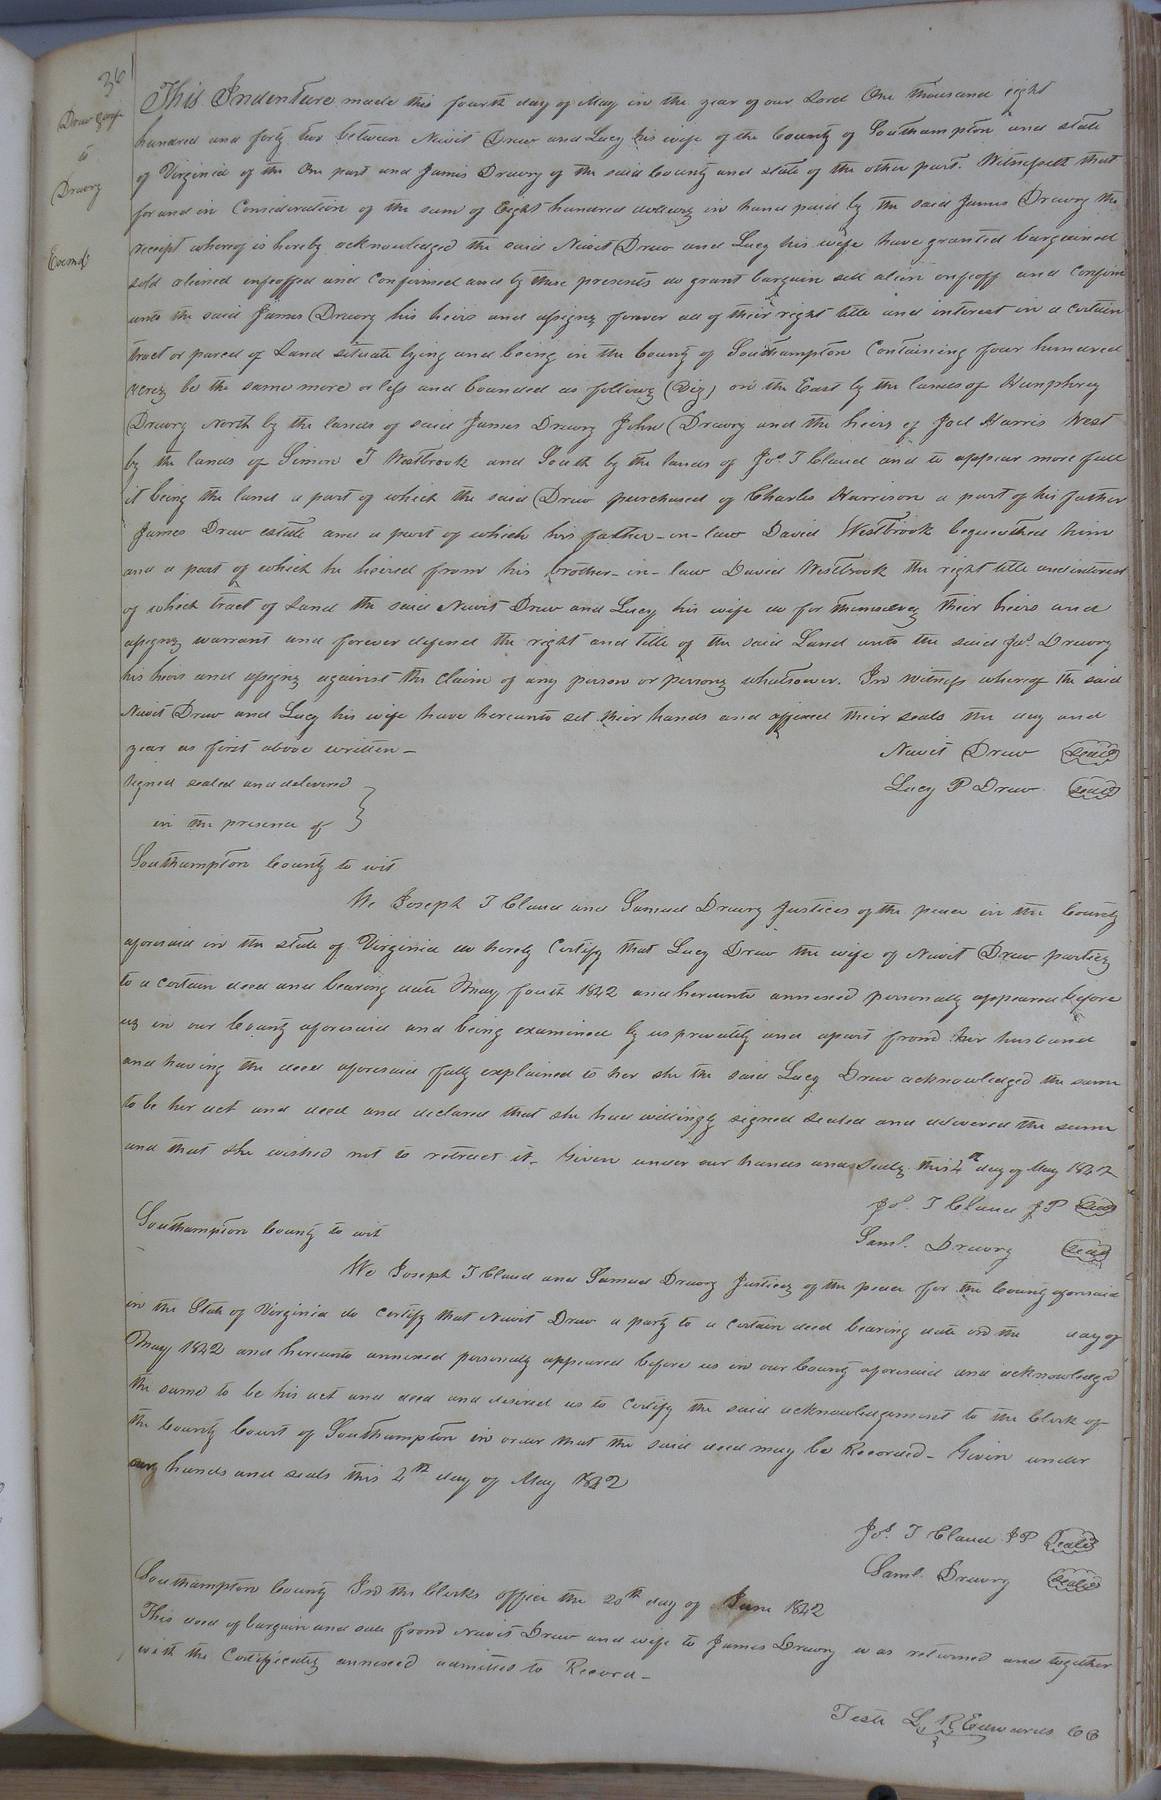 36
This Indenture made this fourth day of May in the year of our Lord One thousand eight
Drew &
hundred and forty two between Newit Drew and Lucy his wife of the County of Southampton and state
to
of Virginia of the One part and James Drewry of the said County and state of the other part. Witnesseth that
Drewry
for and in Consideration of the sum of Eight hundred dollars in hand paid by the said James Drewry the
receipt whereof is hereby acknowledged the said Newit Drew and Lucy his wife have granted bargained
Examd
sold aliened enfeoffed and confirmed and by these presents do grant bargain sell alien enfeoff and confirm
unto the said James Drewry his heirs and assigns forever all of their right title and interest in a certain
tract or parcel of Land situate lying and being in the County of Southampton Containing four hundred
acres be the same more or less and bounded as follows (Viz) on the East by the lands of Humphrey
Drewry North by the lands of said James Drewry John Drewry and the heirs of Joel Harris West
by the lands of Simon T Westbrook and South by the lands of Jos. T Claud and to appear more full
it being the land a part of which the said Drew purchased of Charles Harrison a part of his father
James Drew estate and a part of which his father-in-law David Westbrook bequeathed him
and a part of which he heired from his brother-in-law David Westbrook the right title and interest
of which tract of Land the said Newit Drew and Lucy his wife do for themselves their heirs and
assigns warrant and forever defend the right and title of the said Land unto the said Jas. Drewry
his heirs and assigns against the claim of any person or persons whatsoever. In witness whereof the said
Newit Drew and Lucy his wife have hereunto set their hands and affixed their seals the day and
year as first above written -
Newit Drew Seal
Signed sealed and delivered
Lucy P Drew Seal
in the presence of
Southampton County to wit
We Joseph T Claud and Samuel Drewry Justices of the peace in the County
aforesaid in the state of Virginia do hereby Certify that Lucy Drew the wife of Newit Drew parties
to a certain deed and bearing date May fourth 1842 and hereunto annexed personally appeared before
us in our County aforesaid and being examined by us privately and apart from her husband
and having the deed aforesaid fully explained to her she the said Lucy Drew acknowledged the same
to be her act and deed and declared that she had willingly signed sealed and delivered the same
and that she wished not to retract it. Given under our hands and Seals this 4th day of May 1842
Jos. T Claud JP Seal
Southampton County to wit
Saml. Drewry Seal
We Joseph T Claud and Samuel Drewry Justices of the peace for the County aforesaid
in the State of Virginia do certify that Newit Drew a party to a certain deed bearing date on the day of
May 1842 and hereunto annexed personally appeared before us in our County aforesaid and acknowledged
the same to be his act and deed and desired us to certify the said acknowledgement to the Clerk of
the County Court of Southampton in order that the said deed may be Recorded - Given under
our hands and seals this 4th day of May 1842
Jos. T Claud JP Seal
Saml. Drewry Seal
Southampton County In the Clerks office the 20th day of June 1842
This deed of bargain and sale from Newit Drew and wife to James Drewry was returned and together
with the Certificates annexed admitted to Record -
Teste L R Edwards CC